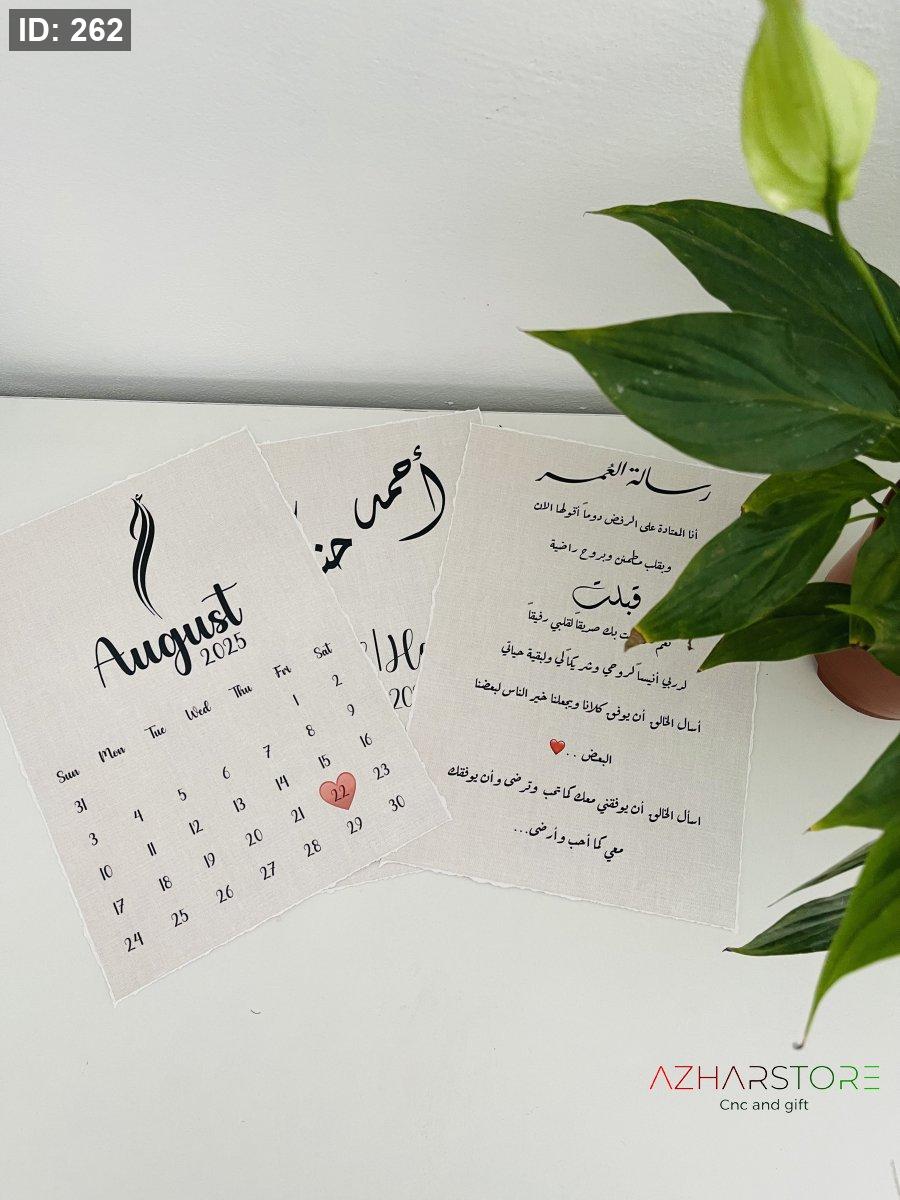 ID: 262
August
2025
Sun Mon Tue Wed Thu Fri Sat
31 1 2
3 4 5 6 7 8 9
10 11 12 13 14 15 16
17 18 19 20 21 22 23
24 25 26 27 28 29 30
أحمد
رسالة العُمر
أنا المعتادة على الرفض دوماً أقولها الان
وبقلب مطمئن وبروح راضية
قبلت
نعم بك صريقاً لقلبي رفيقاً
لدربي أنيساً لروحي وشريكاً لي ولبقية حياتي
أسأل الخالق أن يوفق كلانا ويجعلنا خير الناس لبعضنا
البعض ..❤️
اسأل الخالق أن يوفقني معك كما تحب وترضى وأن يوفقك
معي كما أحب وأرضى...
AZHARSTORE
Cnc and gift